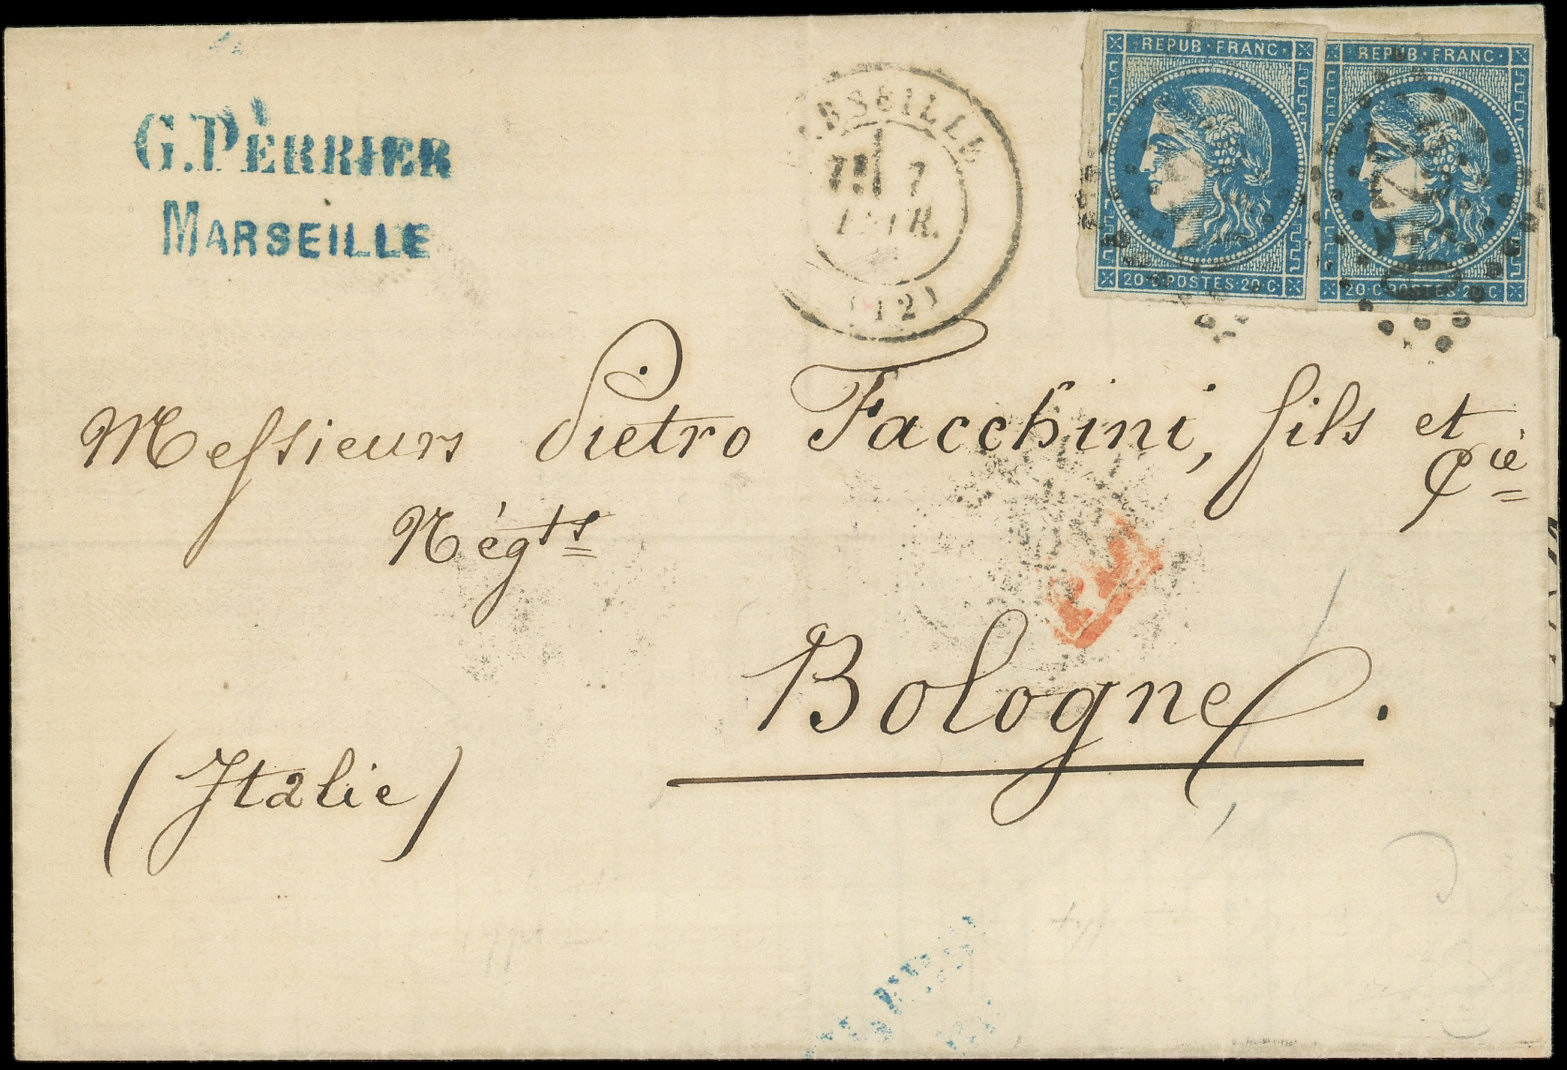 G. PERRIER
MARSEILLE
MARSEILLE
7
(12)
REPUB·FRANC·
20·C·POSTES·20·C
REPUB·FRANC·
20·C·POSTES·20·C
2240
Messieurs Pietro Facchini, fils et
Cie
Négts
P.D.
Bologne.
(Italie)